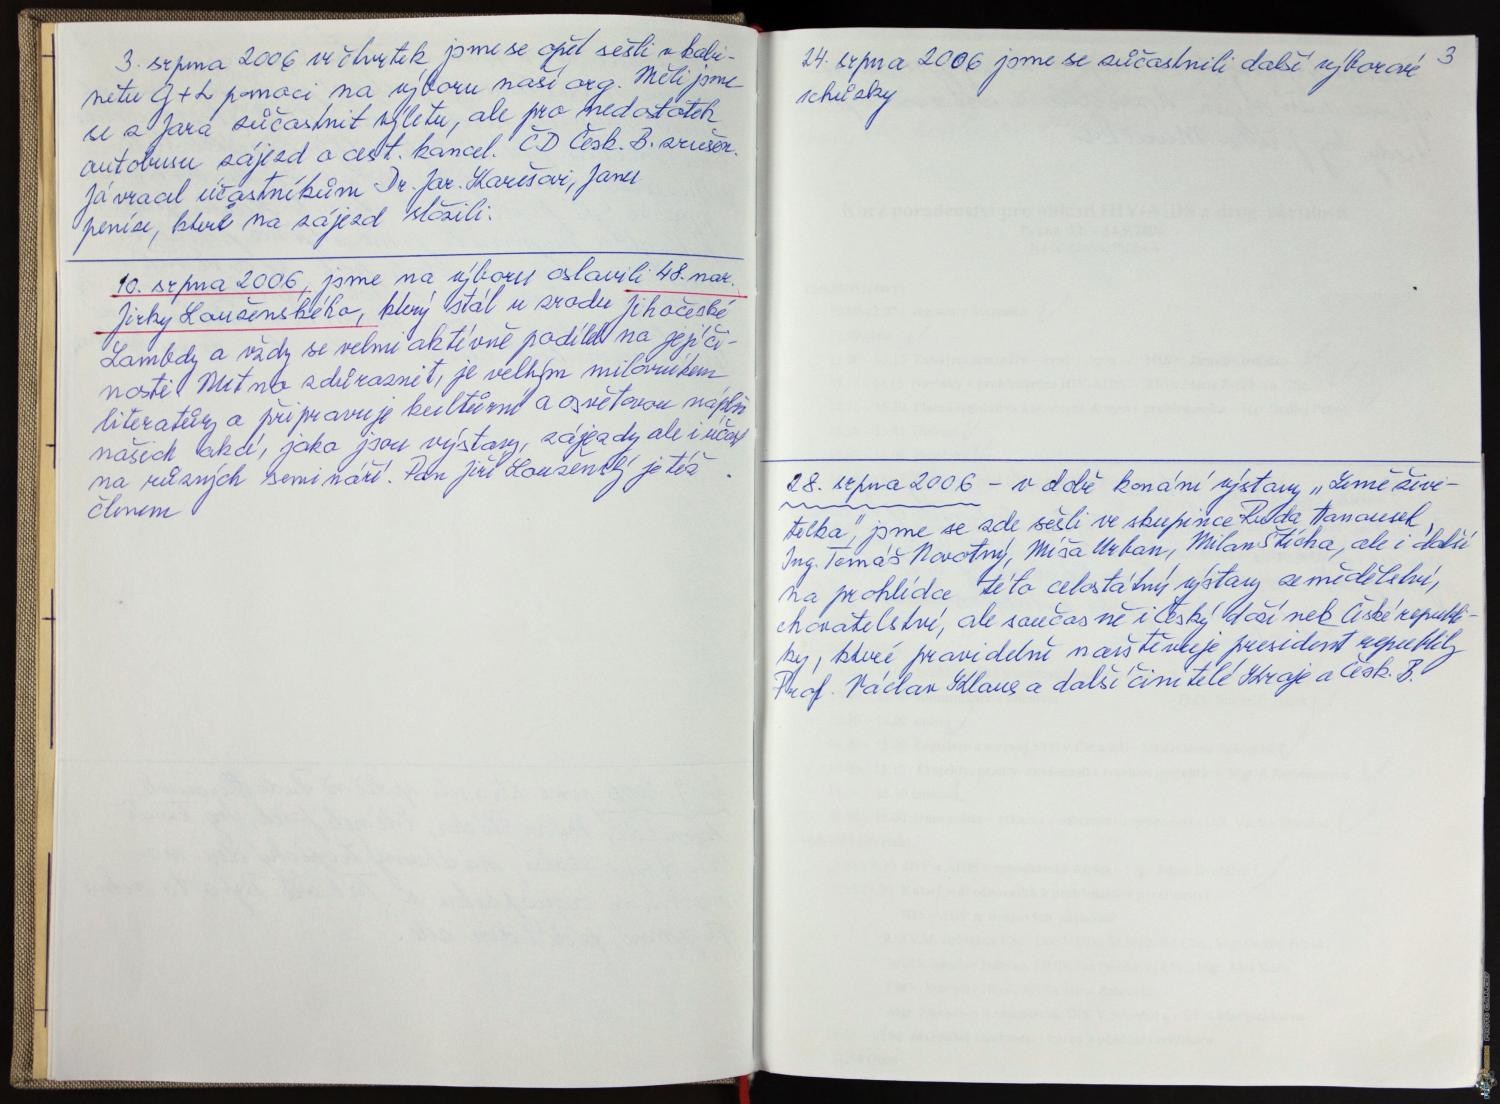 3. srpna 2006 ve čtvrtek jsme se opět sešli v kabi-
netu G+L pomoci na výboru naší org. Měli jsme
se z jara zúčastnit výletu, ale pro nedostatek
autobusu zájezd a cest. kancel. ČD Česk. B. zrušen.
Já vracel účastníkům Dr. Jar. Karešovi, Janu
peníze, které na zájezd složili.
10. srpna 2006, jsme na výboru oslavili 48. nar.
Jirky Louženského, který stál u zrodu Jihočeské
Lambdy a vždy se velmi aktivně podílel na její či-
nosti. Mutno zdůraznit, je velkým milovníkem
literatůry a připravuje kultůrní a osvětovou náplň
našich akcí, jako jsou výstavy, zájezdy ale i účast
na různých seminářů. Pan Jiří Louženský je též
členem
24. srpna 2006 jsme se zúčastnili další výborové 3
schůzky
28. srpna 2006 – v době konání výstavy „Země živi-
telka", jsme se zde sešli ve skupince Ruda Hanousek,
Ing. Tomáš Novotný, Míša Urban, Milan Štícha, ale i další
na prohlídce této celostátný výstavy zemědělství,
chovatelství, ale současně i Český dožínek České republi-
ky, které pravidelně navštěvuje president republiky
Prof. Václav Klaus a další činitelé Kraje a Česk. B.